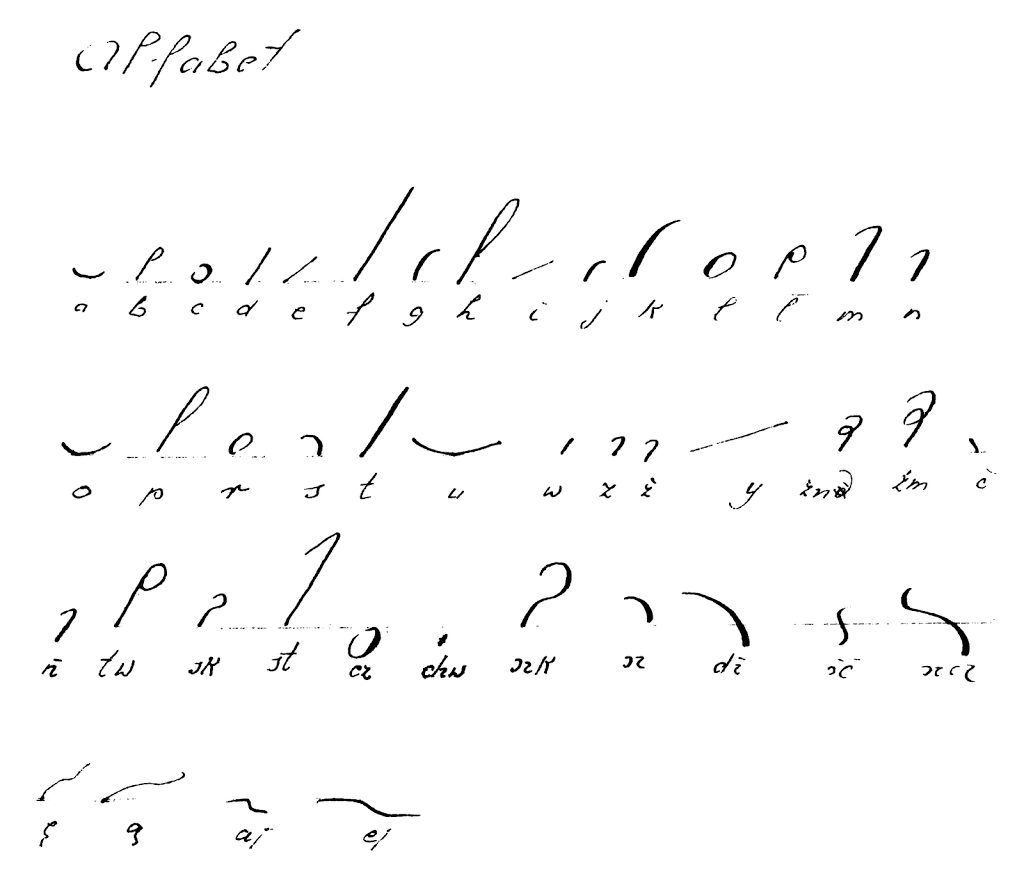 Alfabet
a b c d e f g h i j k l ł m n
o p r s t u w z ż y żm ć
ń tw sk st cz chw szk sz dź ść szcz
ę ą aj ej